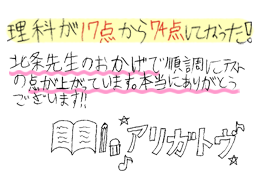 理科が17点から74点になった!
北条先生のおかげで順調にテスト
の点が上がっています。本当にありがとう
ございます!!
アリガトヴ